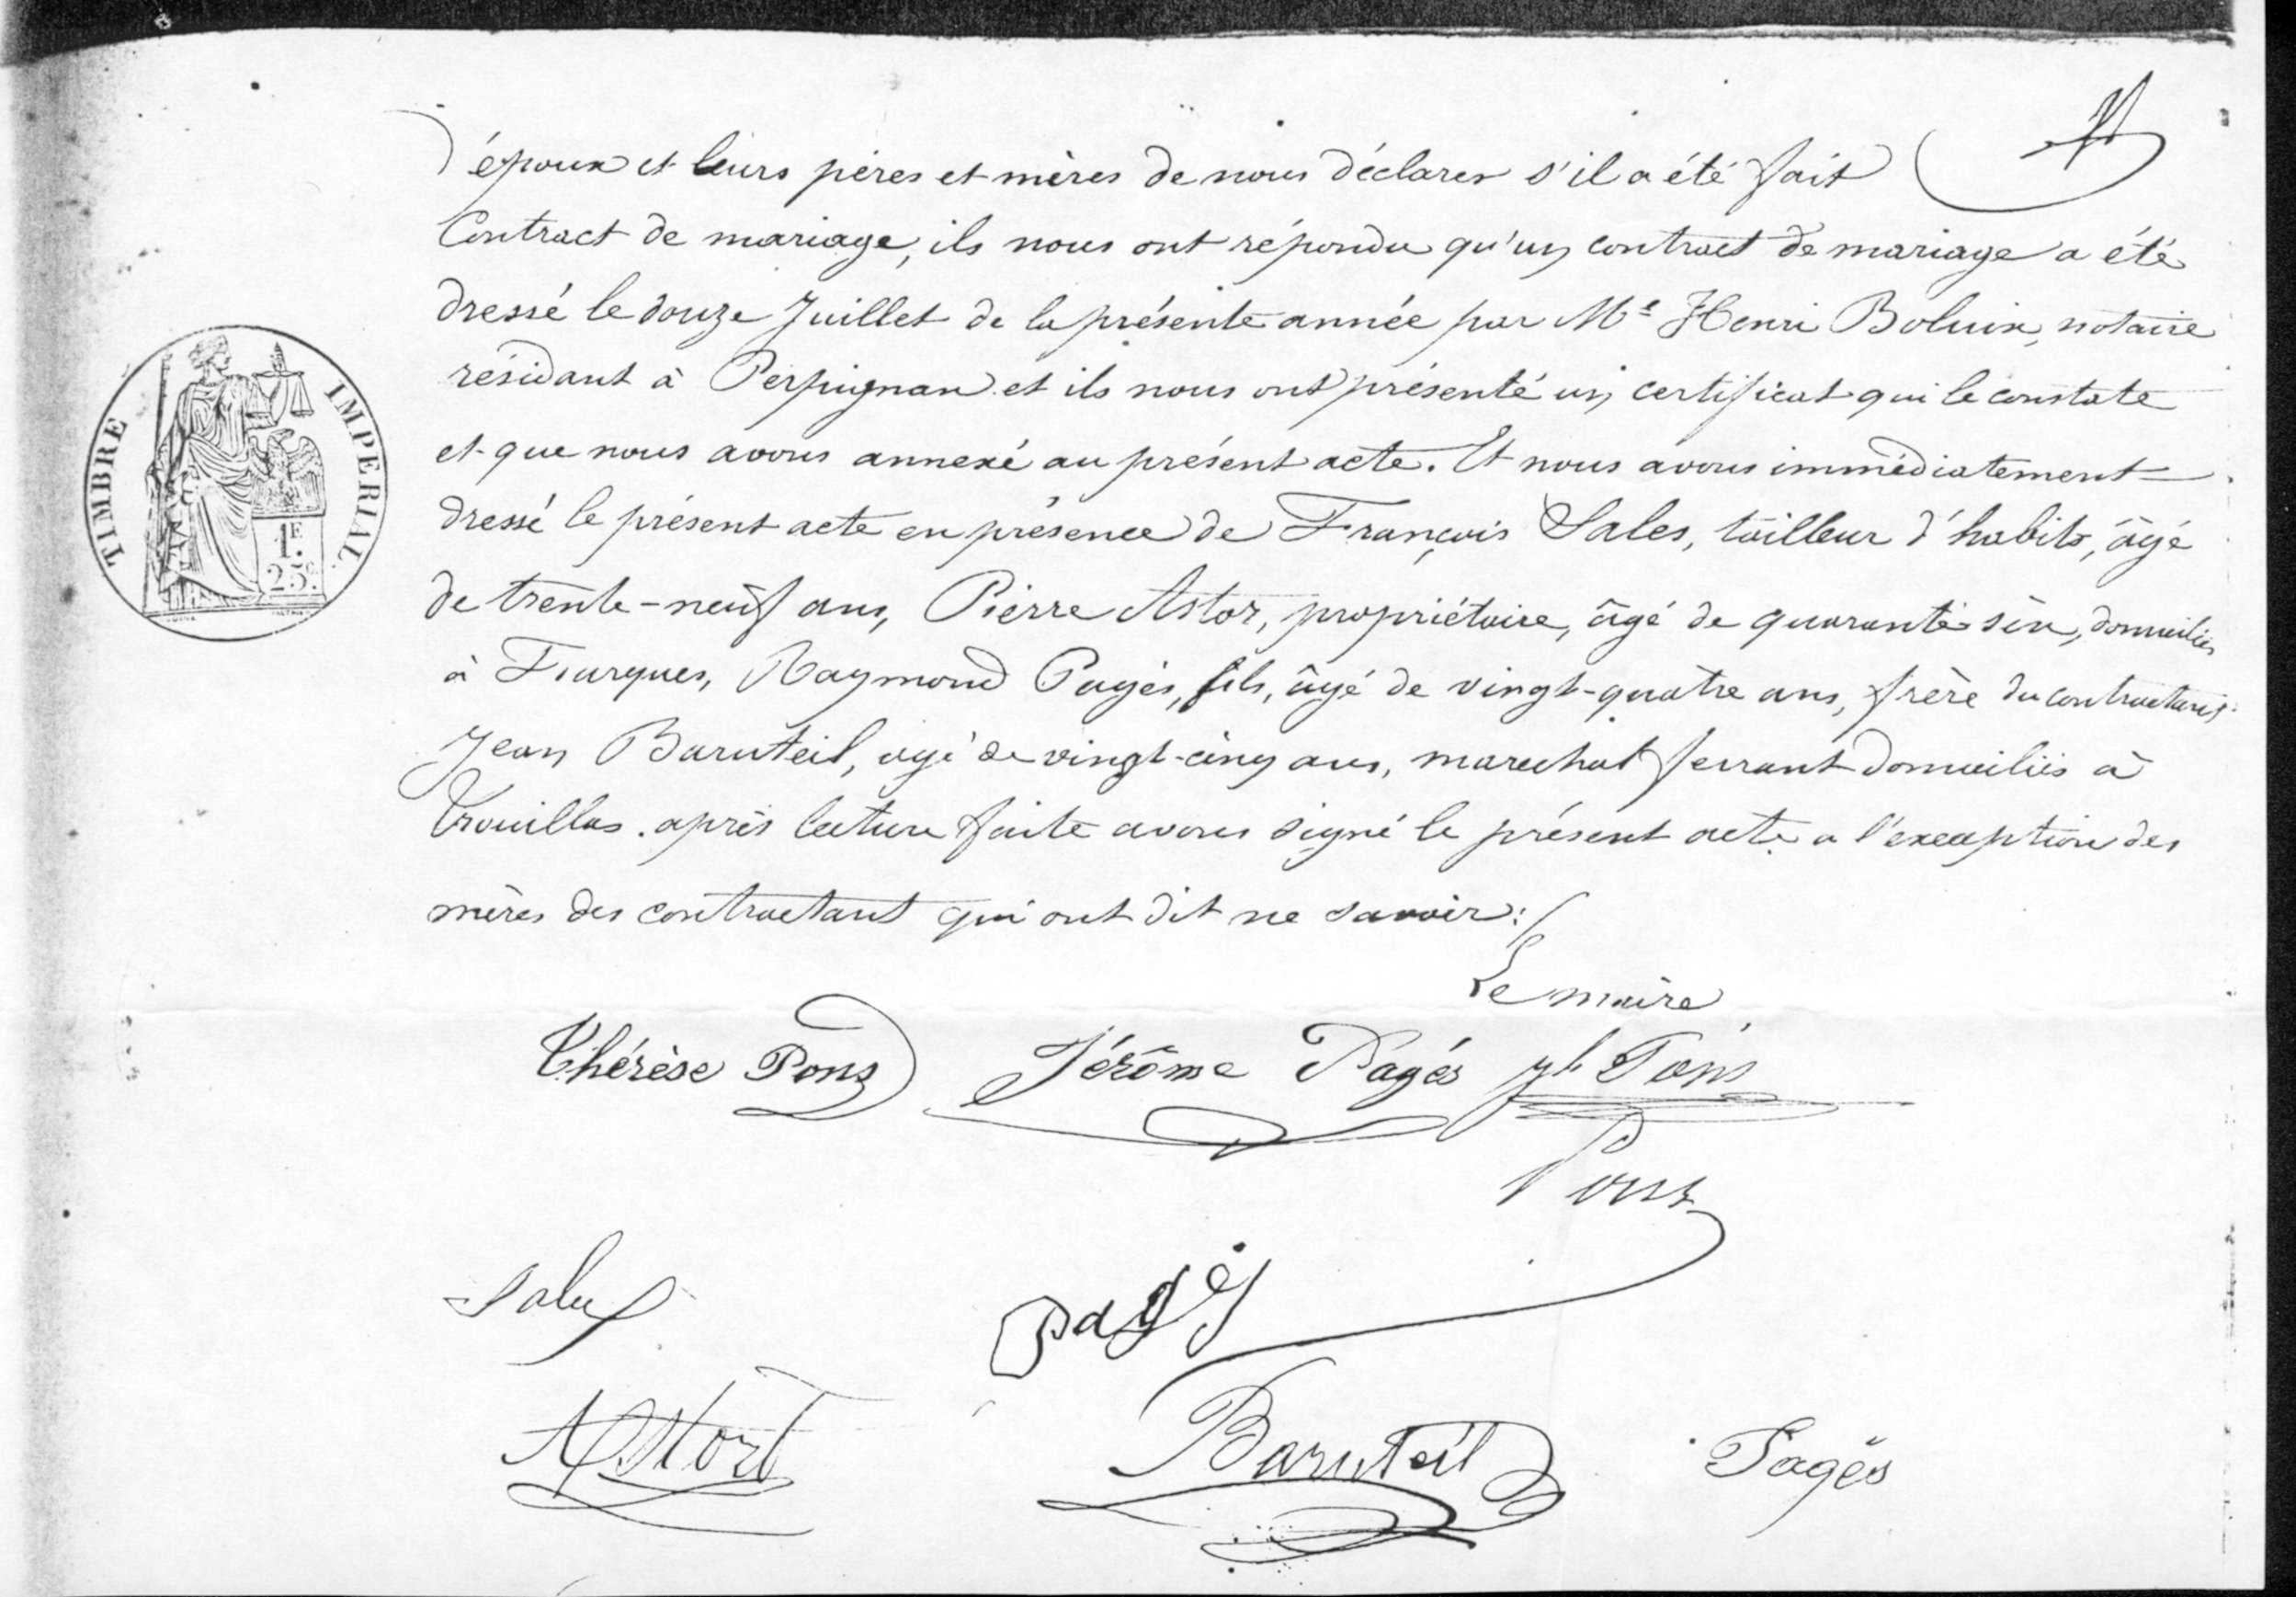 époux et leurs pères et mères de nous déclarer s'il a été fait
Contract de mariage, ils nous ont répondu qu'un contract de mariage a été
dressé le douze Juillet de la présente année par Me Henri Boluix, notaire
résidant à Perpignan et ils nous ont présenté un certificat qui le constate
et que nous avons annexé au présent acte. Et nous avons immédiatement
dressé le présent acte en présence de François Sales, tailleur d'habits, âgé
de trente-neuf ans, Pierre Astor, propriétaire, âgé de quarante six, domiciliés
à Fourques, Raymond Pagès, fils, âgé de vingt-quatre ans, frère du contractant
Jean Baruteil, agé de vingt-cinq ans, marechal ferrant domiciliés à
Trouillas. après lecture faite avons signé le présent acte a l'exception des
mères des contractant qui ont dit ne savoir :
TIMBRE IMPERIAL
1F.
25c.
Le maire
Thérèse Pons Jérôme Pagés Pons
Pons
Sales
Pagès
Astort
Baruteil Pagès